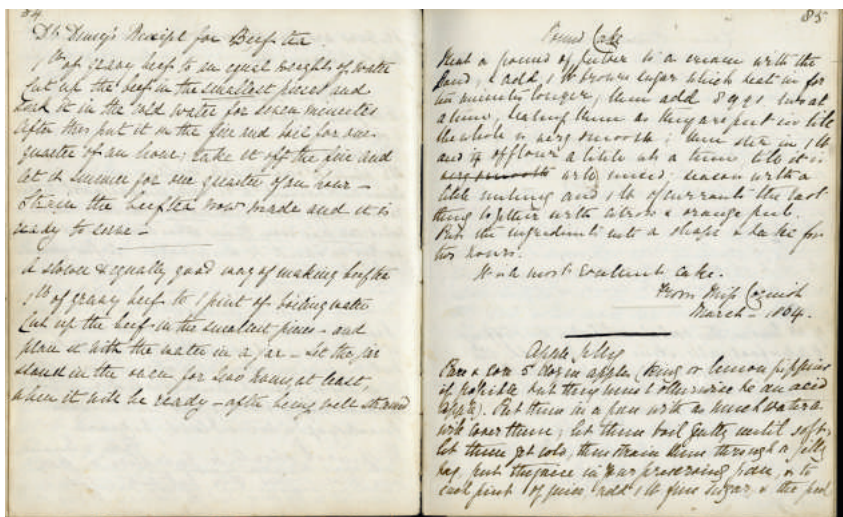 84
Dr. Dewey's Receipt for Beef tea.
1 lb of gravy beef to an equal weight of water
Cut up the beef in the smallest pieces and
soak it in the cold water for seven minutes
After this put it on the fire and boil for one
quarter of an hour; take it off the fire and
let it simmer for one quarter of an hour –
Strain the beeftea now made and it is
ready to serve –
A slower & equally good way of making beeftea
1 lb of gravy beef to 1 pint of boiling water
Cut up the beef in the smallest pieces – and
place it with the water in a jar – Let the jar
stand in the oven for two hours, at least,
when it will be ready – after being well strained
85
Pound Cake
Heat a pound of butter to a cream with the
hand, & add 1 lb brown sugar which beat in for
ten minutes longer, then add 8 eggs two at
a time, beating them as they are put in till
the whole is very smooth; then stir in 1 lb
and ¼ of flour a little at a time till it is
very smooth well mixed; season with a
little nutmeg and 1 lb of currants the last
thing together with citron & orange peel.
Put the ingredients into a shape & bake for
two hours.
It is a most excellent cake.
From Miss Cornish
March – 1864.
Apple Jelly
Pare & core 5 dozen apples (King or lemon pippins
if possible but they must otherwise be an acid
apple). Put them in a pan with as much water as
will cover them; let them boil gently until soft,
let them get cold, then strain them through a jelly
bag, put the juice in your preserving pan, & to
each pint of juice, add 1 lb fine sugar, & the peel